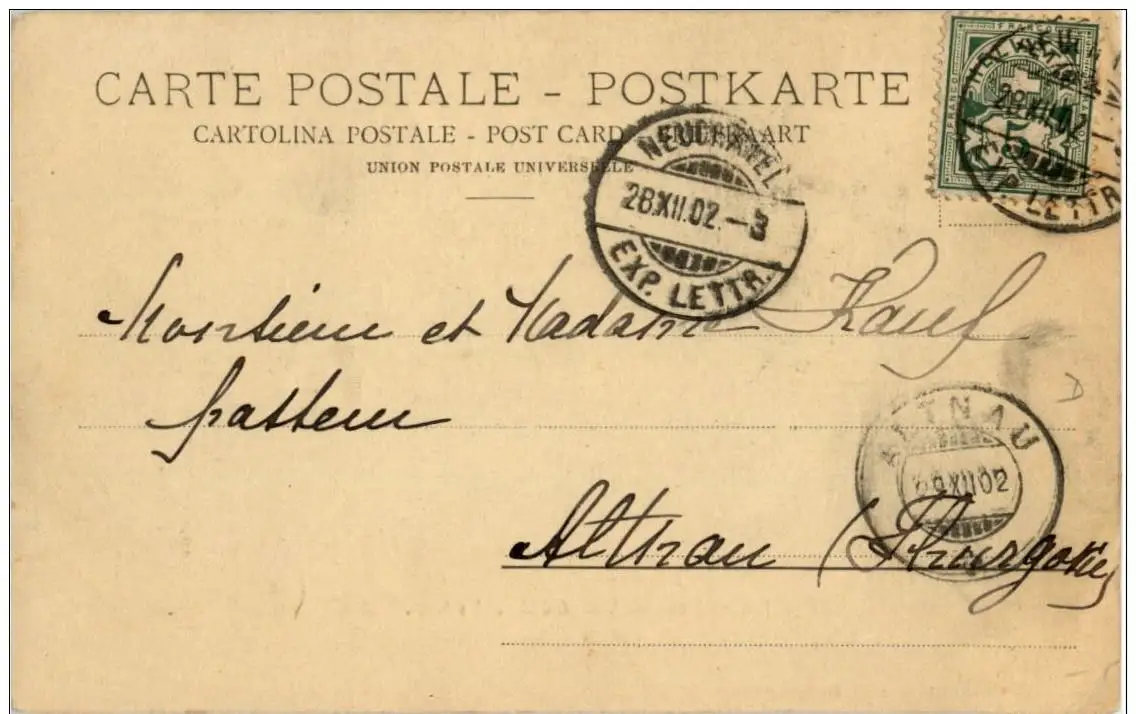 CARTE POSTALE - POSTKARTE
CARTOLINA POSTALE - POST CARD
UNION POSTALE UNIVERSELLE
FRANCO
5
28.XII.02
EXP. LETTR.
NEUCHATEL
28.XII.02.-3
EXP. LETTR.
Monsieur et Madame Kauf
pasteur
ALTNAU
29.XII.02
Altnau (Thurgovie)
D